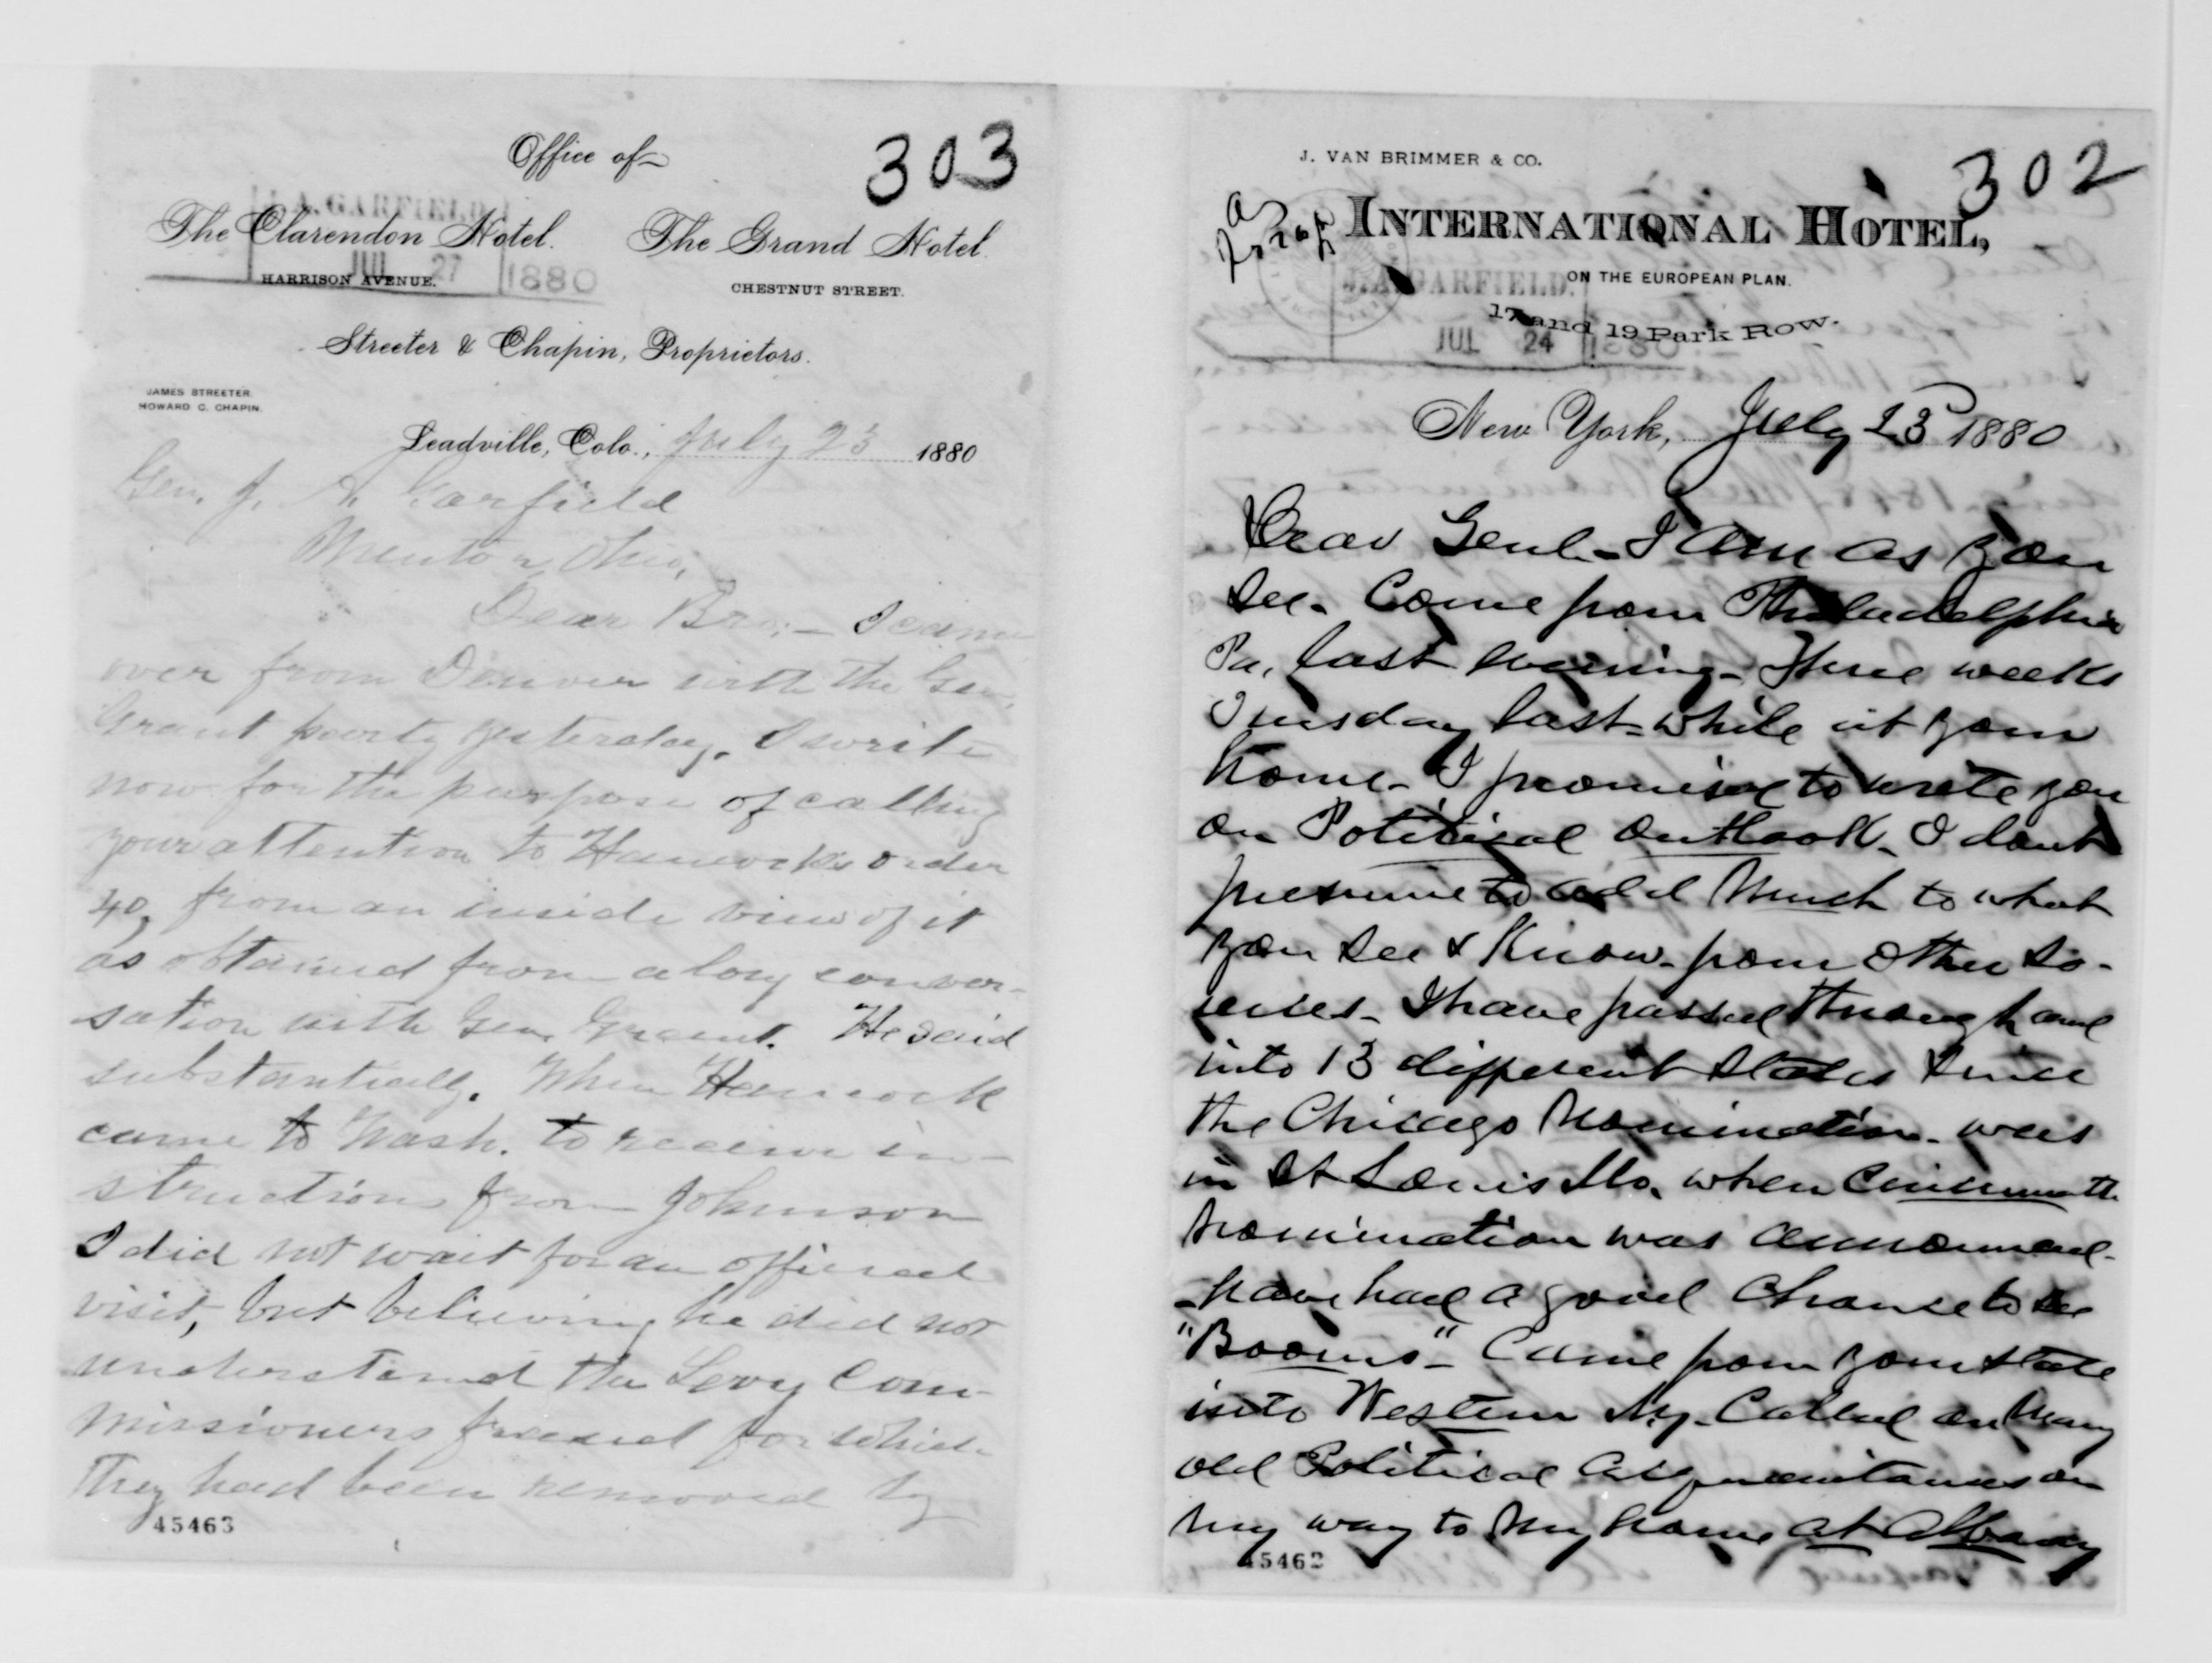 Office of
303
J. A. GARFIELD.
The Clarendon Hotel. The Grand Hotel.
JUL 27 1880
HARRISON AVENUE. CHESTNUT STREET.
Streeter & Chapin, Proprietors.
JAMES STREETER.
HOWARD C. CHAPIN.
Leadville, Colo., July 23 1880
Gen. J. A. Garfield
Mentor, Ohio,
Dear Bro:— I came
over from Denver with the Gen.
Grant party yesterday. I write
now for the purpose of calling
your attention to Hancock's order
40, from an inside view of it
as obtained from a long conver-
sation with Gen. Grant. He said
substantially. When Hancock
came to Wash. to receive in-
structions from Johnson
I did not wait for an official
visit, but believing he did not
understand the Levy Com-
missioners for which
they had been removed by
45463
J. VAN BRIMMER & CO.
302
INTERNATIONAL HOTEL,
ON THE EUROPEAN PLAN.
J. A. GARFIELD.
17 and 19 Park Row.
JUL 24 1880
New York, July 23 1880
Dear Genl - I am as you
see. Come from Philadelphia
Pa, last evening - Three weeks
Tuesday last - while at your
home - I promised to write you
on Political Outlook - I dont
presume to add much to what
you see & Know - from other so-
urces - I have passed through and
into 13 different States since
the Chicago Nomination - was
in St Louis Mo. when Cincinnatti
Nomination was announced -
- have had a good chance to see
"Booms" - Came from your state
into Western Ny. Called on many
old Political Acquaintances on
my way to my home at Albany
45462